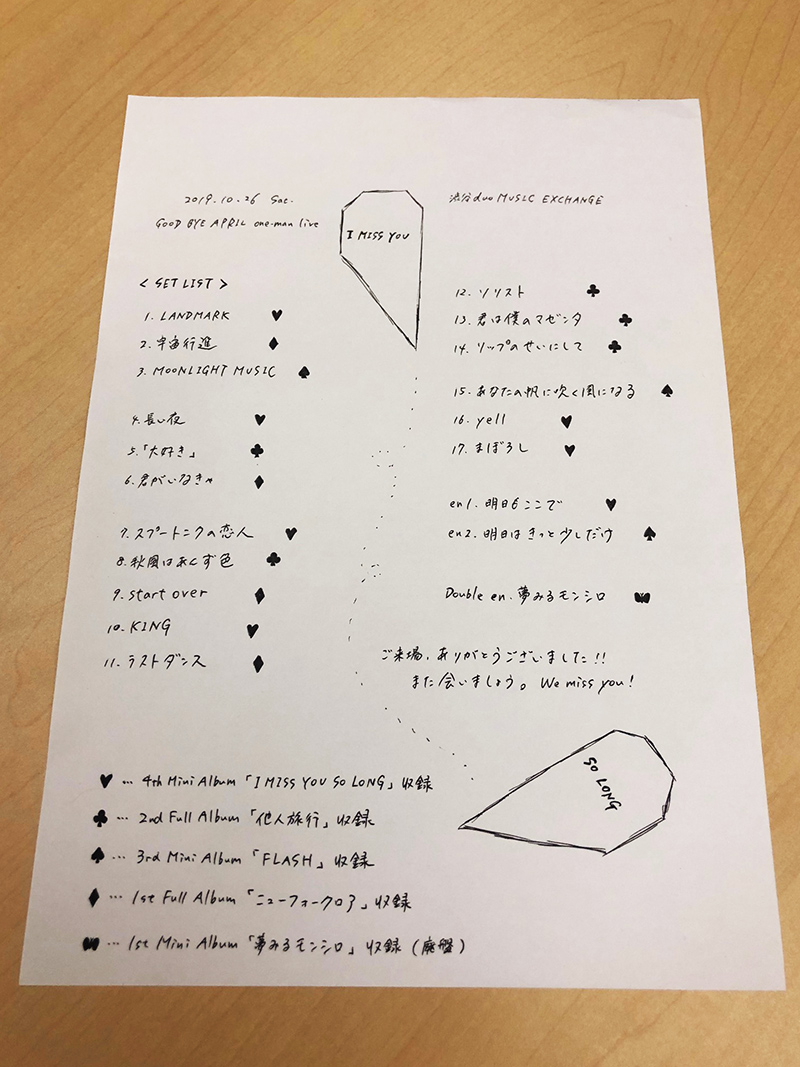 2019.10.26 Sat.
GOOD BYE APRIL one-man live
I MISS YOU
渋谷duo MUSIC EXCHANGE
< SET LIST >
1. LANDMARK ♥
2. 宇宙行進 ♦
3. MOONLIGHT MUSIC ♠
4. 長い夜 ♥
5.「大好き」 ♣
6. 君がいなきゃ ♦
7. スプートニクの恋人 ♥
8. 秋風はあくず色 ♣
9. start over ♦
10. KING ♥
11. ラストダンス ♦
12. ソリスト ♣
13. 君は僕のマゼンタ ♣
14. リップのせいにして ♣
15. あなたの帆に吹く風になる ♠
16. yell ♥
17. まぼろし ♥
en1. 明日もここで ♥
en2. 明日はきっと少しだけ ♠
Double en. 夢みるモンシロ
ご来場、ありがとうございました!!
また会いましょう。We miss you!
SO LONG
♥ … 4th Mini Album「I MISS YOU SO LONG」収録
♣ … 2nd Full Album「他人旅行」収録
♠ … 3rd Mini Album「FLASH」収録
♦ … 1st Full Album「ニューフォークロア」収録
… 1st Mini Album「夢みるモンシロ」収録(廃盤)